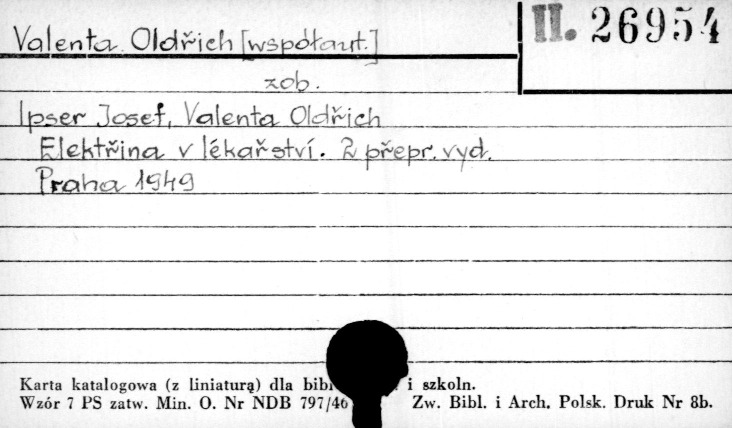 Valenta Oldřich [współaut.]
II. 26954
zob.
Ipser Josef, Valenta Oldřich
Elektřina v lékařství. 2 přepr. vyd.
Praha 1949
Karta katalogowa (z liniaturą) dla bibl i szkoln.
Wzór 7 PS zatw. Min. O. Nr NDB 797/46 Zw. Bibl. i Arch. Polsk. Druk Nr 8b.